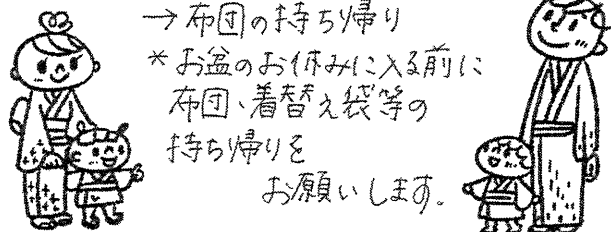 →布団の持ち帰り
*お盆のお休みに入る前に
布団、着替え袋等の
持ち帰りを
お願いします。